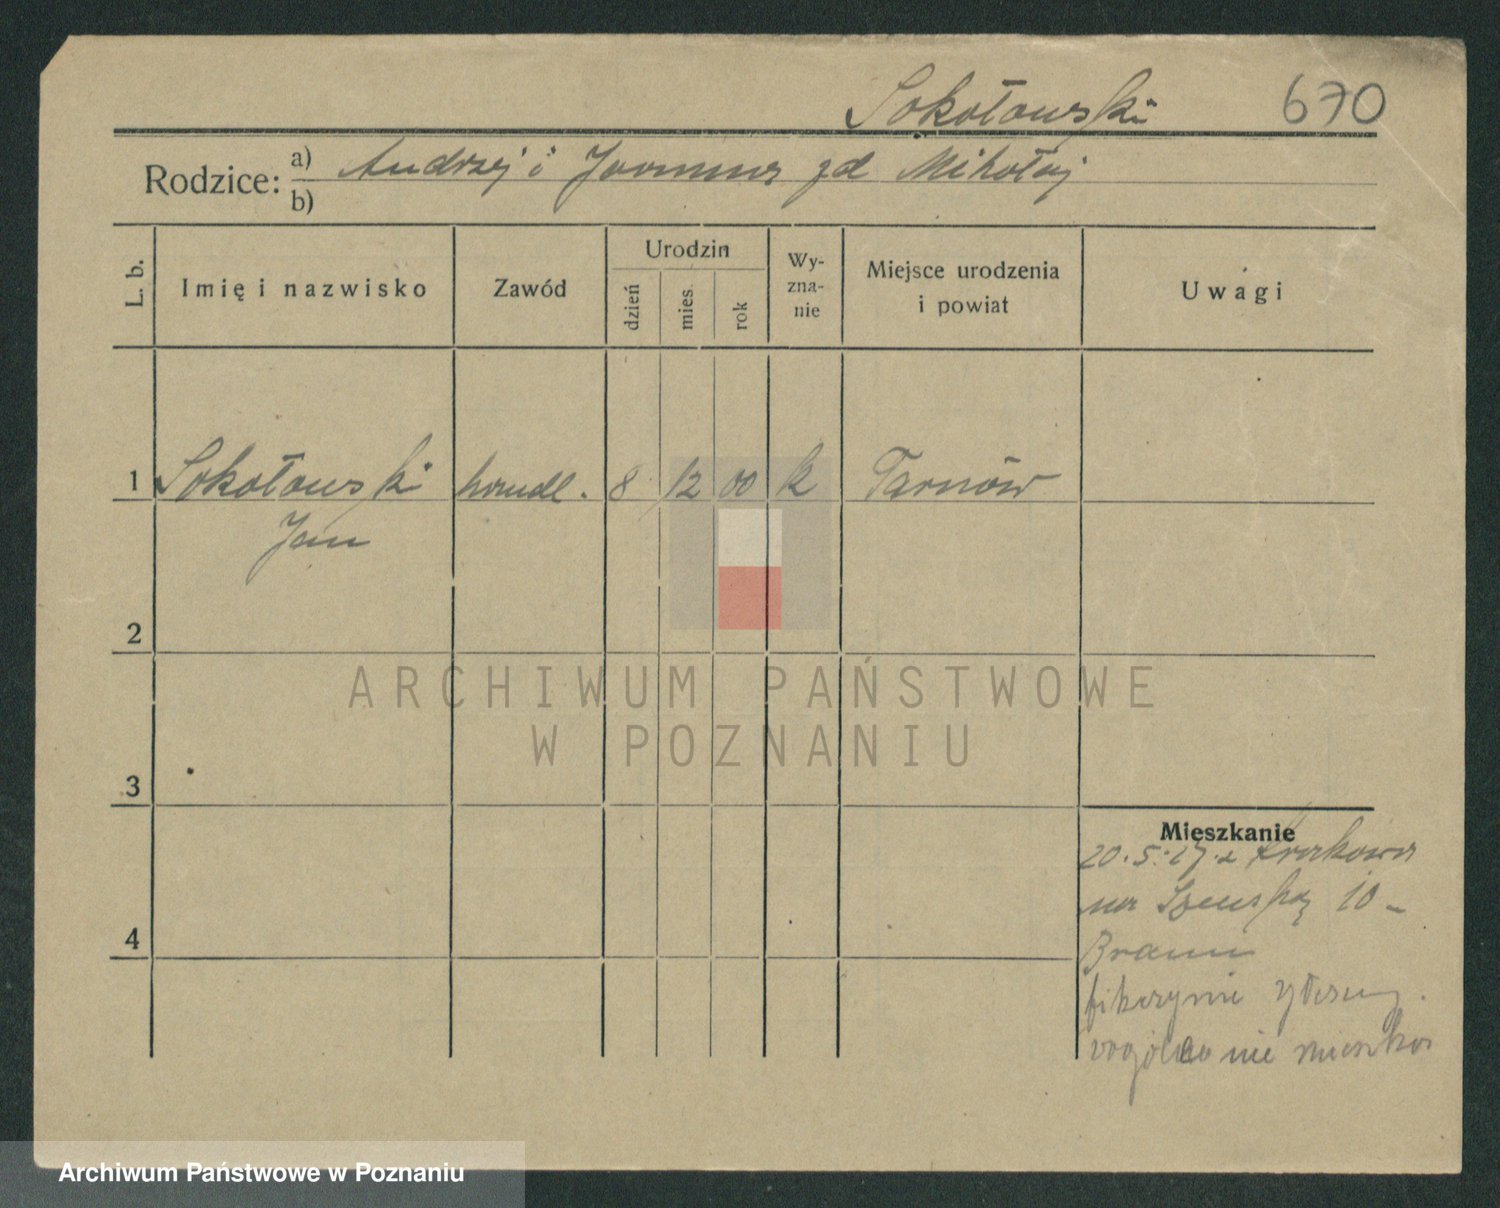 Sokołowski 670
Rodzice: a) Andrzej i Joanna zd Mikołaj
b)
L. b. Imię i nazwisko Zawód Urodzin dzień mies. rok Wy-zna-nie Miejsce urodzenia i powiat Uwagi
1 Sokołowski handl. 8 12 00 k Tarnów
Jan
2
ARCHIWUM PAŃSTWOWE
W POZNANIU
3
Mieszkanie
20.5.27 z Krakowa
na 10 -
Braun
fikcyjnie
wogóle nie mieszka
4
Archiwum Państwowe w Poznaniu